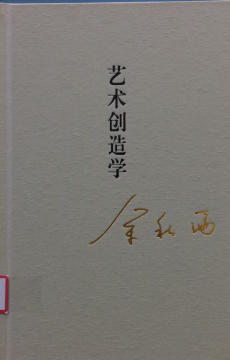 艺术创造学
余秋雨